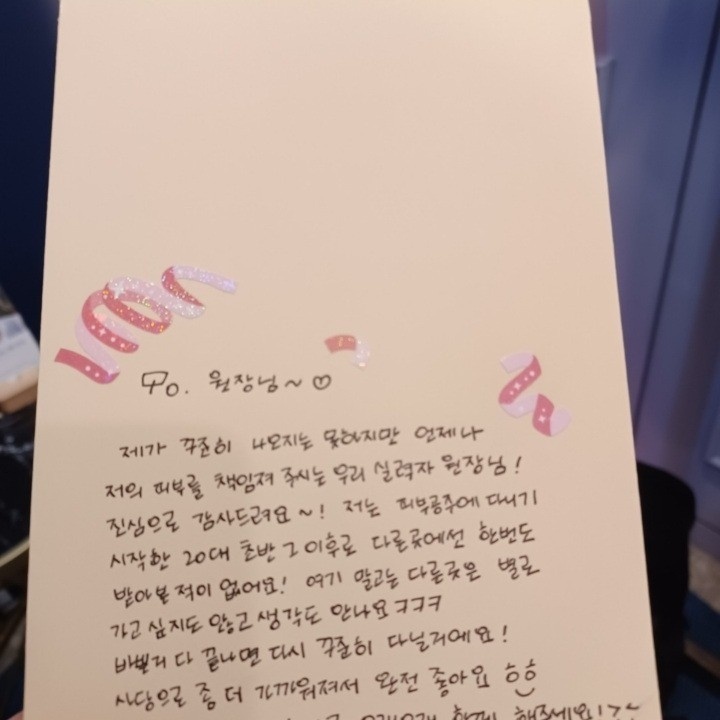 To. 원장님~♡
제가 꾸준히 나오지는 못하지만 언제나
저의 피부를 책임져 주시는 우리 실력자 원장님!
진심으로 감사드려요~! 저는 피부공주에 다니기
시작한 20대 초반 그 이후로 다른곳에선 한번도
받아본 적이 없어요! 여기 말고는 다른곳은 별로
가고 싶지도 않고 생각도 안나요ㅋㅋㅋ
바쁜거 다 끝나면 다시 꾸준히 다닐거에요!
사당으로 좀 더 가까워져서 완전 좋아요 ㅎㅎ
오래오래 함께 해주세요!>~